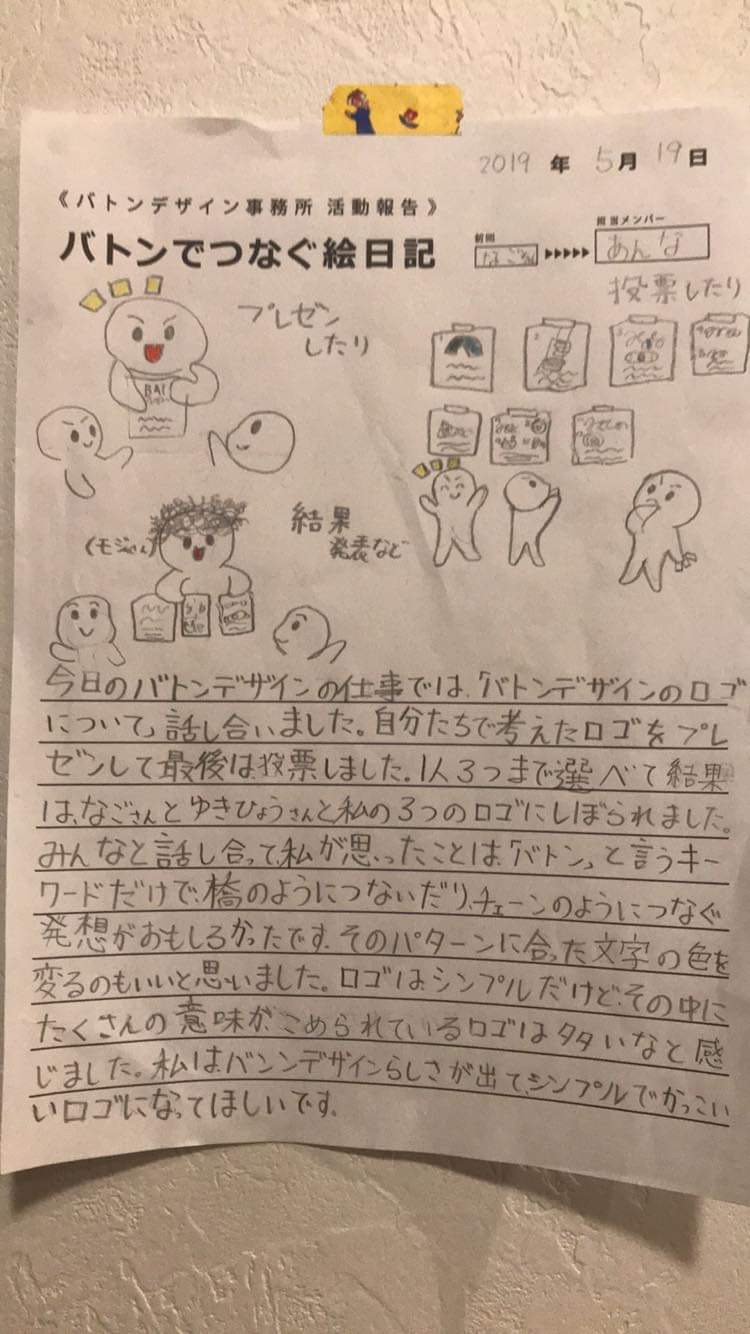 2019 年 5月 19日
《バトンデザイン事務所 活動報告》
バトンでつなぐ絵日記
前回
担当メンバー
あんな
プレゼン
したり
投票したり
結果
発表など
今日のバトンデザインの仕事では、「バトンデザインのロゴ
について」話し合いました。自分たちで考えたロゴをプレ
ゼンして最後は、投票しました。1人3つまで選べて結果
は、なごさんとゆきひょうさんと、私の3つのロゴにしぼられました。
みんなと話し合って、私が思ったことは、「バトン」と言うキー
ワードだけで、橋のようにつないだり、チェーンのようにつなぐ
発想がおもしろかったです。そのパターンに合った文字の色を
変るのもいいと思いました。ロゴは、シンプルだけど、その中に
たくさんの意味が、こめられているロゴは多いなと感
じました。私は、バンンデザインらしさが出て、シンプルでかっこい
いロゴになってほしいです。